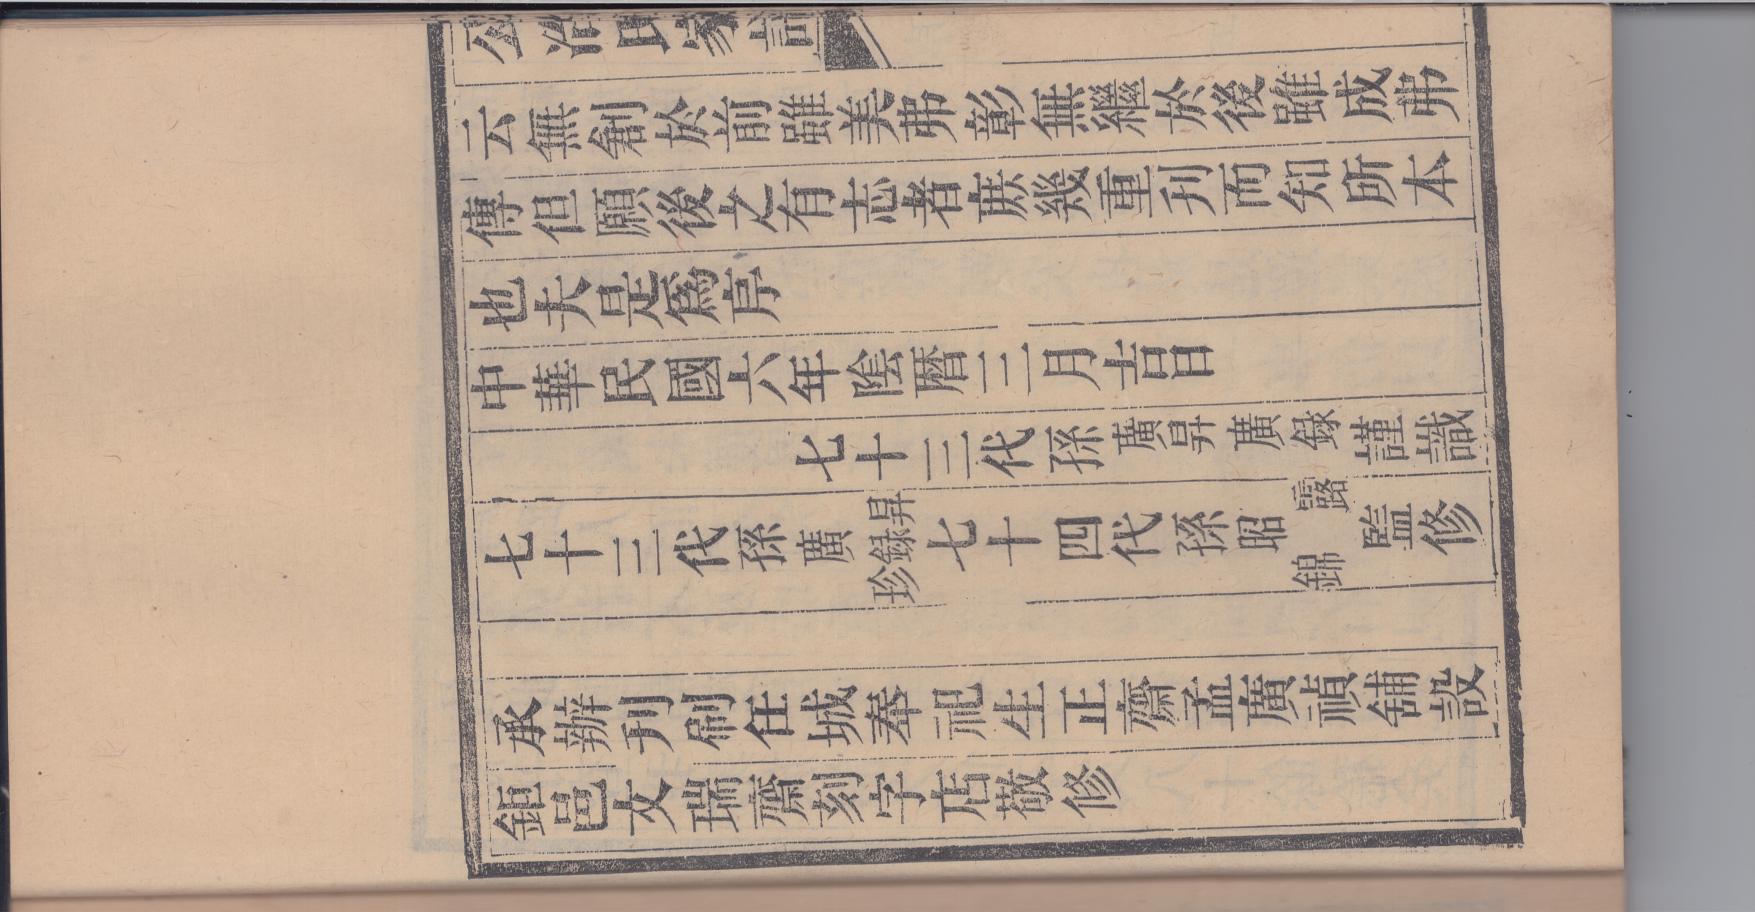 公冶氏家誌
云無創於前雖美弗彰無繼於後雖成弗
傳但願後之有志者庶幾重刊而知所本
也夫是爲序
中華民國六年陰曆三月吉日
七十三代孫廣昇廣錄謹識
七十三代孫廣昇錄珍七十四代孫昭露錦監修
承辦刊刷任城奉祀生正齋孟廣禎舖設
鉅邑文瑞齋刻字店敬修